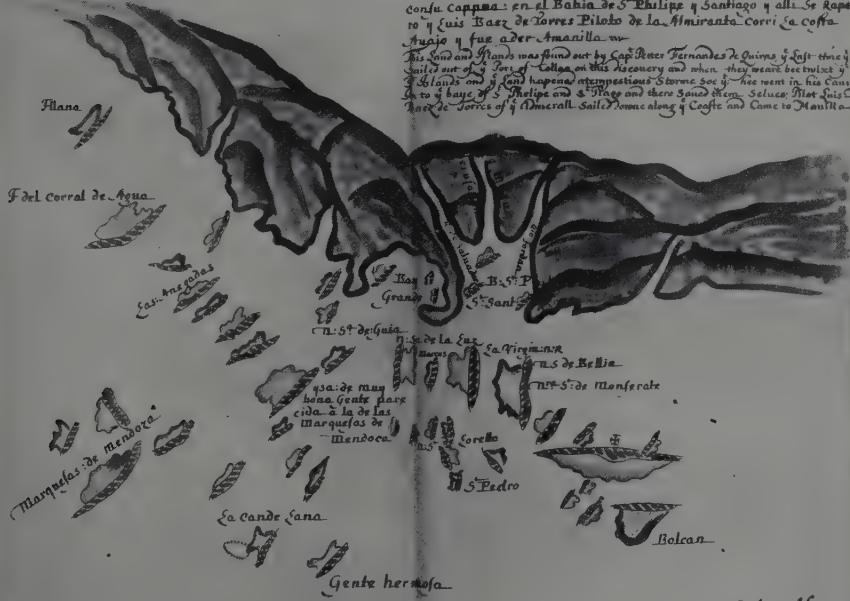 Confu Cappna: en el Bahia de Sᵗ Phelipe y Santiago y alli Se
to y Luis Baez de Torres Piloto de la Almiranta Corri La Costa
Auajo y fue ader Amanilla
This Land and Islands was found out by Capᵗ Petter Fernandes de Quiros yᵉ Last time yᵗ
Sailed out of yᵉ Port of on this discovery and when they weare betwixt yᵉ
Islands and yᵉ Land hapened attempestious Storme Soe yᵗ hee went in his
to yᵉ baye of Sᵗ Phelipe and S Tiago and there Saued them Selues: Pilot Luis
Baez de Torres of yᵉ Admerall Sailed Downe along yᵉ Coaste and Came to Manilla
Fllana
F del Corral de Agua
Las: Anegadas
Bay
Grande
B: S: P
Sᵗ: Sant
n: Sᵗ de: Guia
n: Sᵃ de la Luz
La Virgin: n: R
Marcos
n S de Bellia
nᵗᵃ Sᵃ: de Monserate
ysa: de muy
bona Gente pare
cida â la de las
Marquesas de
Mendoca
Loretto
n: S
Sᵗ Pedro
Marquesas: de Mendoza
La Cande Lana
Bolcan
Gente hermosa